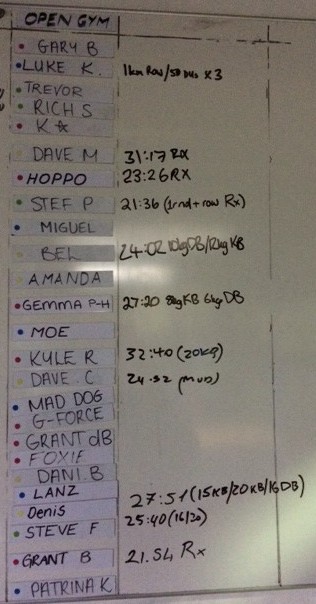 OPEN GYM
GARY B
LUKE K. 1km Row/50 DUs x3
TREVOR
RICH S
K☆
DAVE M 31:17 RX
HOPPO 23:26 RX
STEF P 21:36 (1rnd+row Rx)
MIGUEL
BEL 24:02 10kgDB/12kgKB
AMANDA
GEMMA P-H 27:20 8kgKB 6kgDB
MOE
KYLE R 32:40 (20kg)
DAVE.C 24:52
MAD DOG
G-FORCE
GRANT dB
FOXIE
DANI.B
LANZ 27:51 (15KB/20KB/16DB)
Denis 25:40 (16/20)
STEVE F
GRANT B 21.54 Rx
PATRINA K